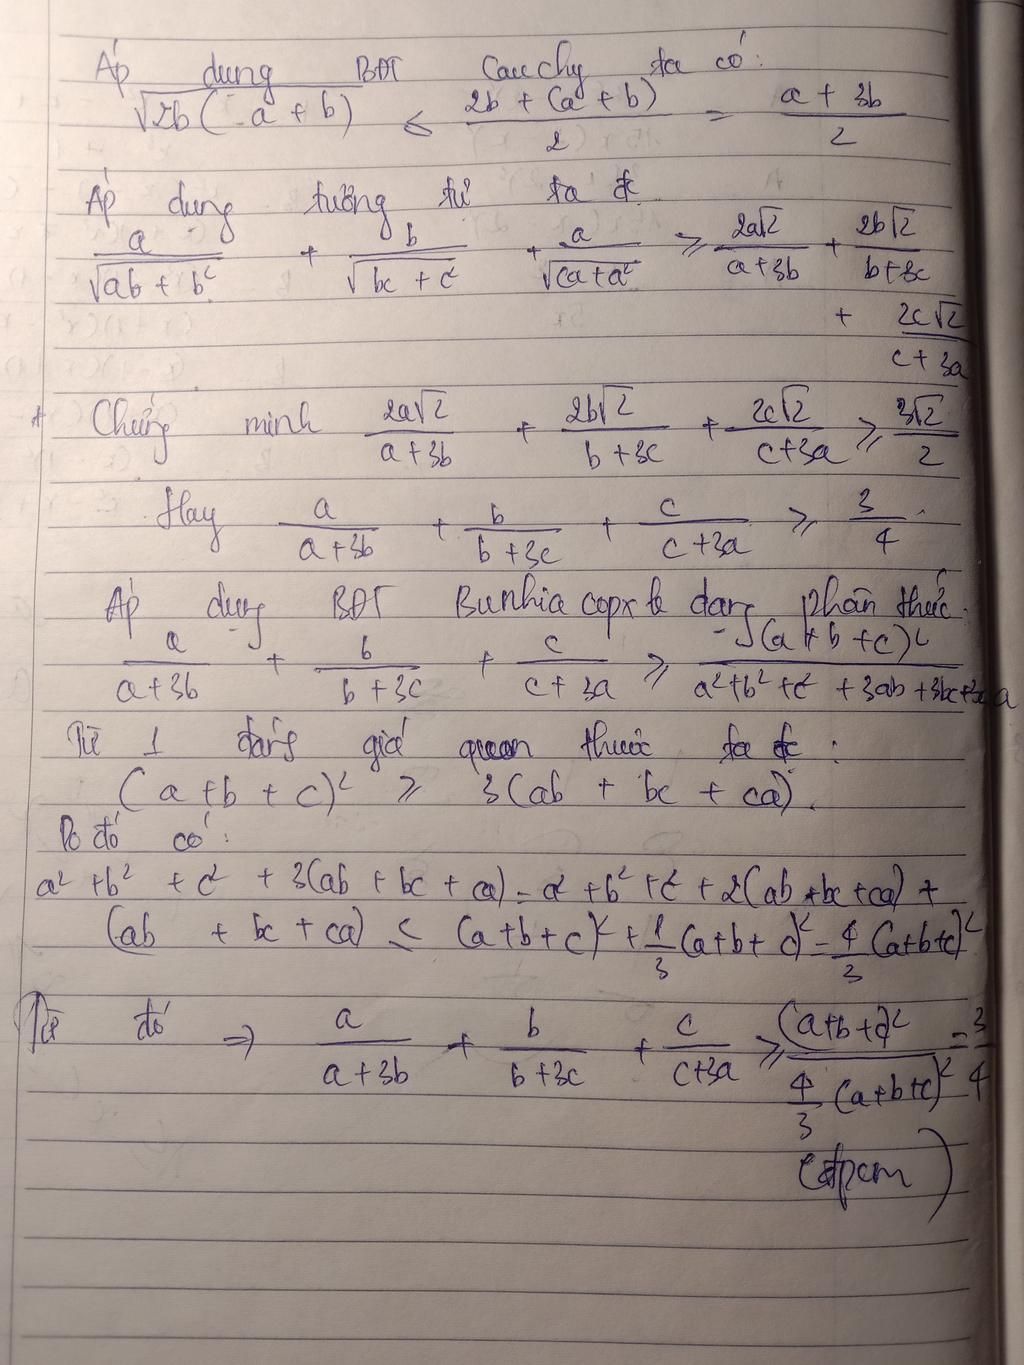 Áp dụng BĐT Cauchy ta có:
√2b(a + b) ≤ (2b + (a + b))/2 = (a + 3b)/2
Áp dụng tương tự ta đc
a/√(ab + b²) + b/√(bc + c²) + a/√(ca + a²) ≥ 2a√2/(a + 3b) + 2b√2/(b + 3c)
+ 2c√2/(c + 3a)
* Chứng minh 2a√2/(a + 3b) + 2b√2/(b + 3c) + 2c√2/(c + 3a) ≥ 3√2/2
Hay a/(a + 3b) + b/(b + 3c) + c/(c + 3a) ≥ 3/4.
Áp dụng BĐT Bunhiacopxki dạng phân thức.
a/(a + 3b) + b/(b + 3c) + c/(c + 3a) ≥ (a + b + c)²/(a² + b² + c² + 3ab + 3bc + 3ca)
Từ 1 đánh giá quen thuộc ta đc:
(a + b + c)² ≥ 3(ab + bc + ca).
Do đó có:
a² + b² + c² + 3(ab + bc + ca) = a² + b² + c² + 2(ab + bc + ca) +
(ab + bc + ca) ≤ (a + b + c)² + 1/3 (a + b + c)² = 4/3 (a + b + c)²
Từ đó ⇒ a/(a + 3b) + b/(b + 3c) + c/(c + 3a) ≥ (a + b + c)²/(4/3 (a + b + c)²) = 3/4
(đpcm)